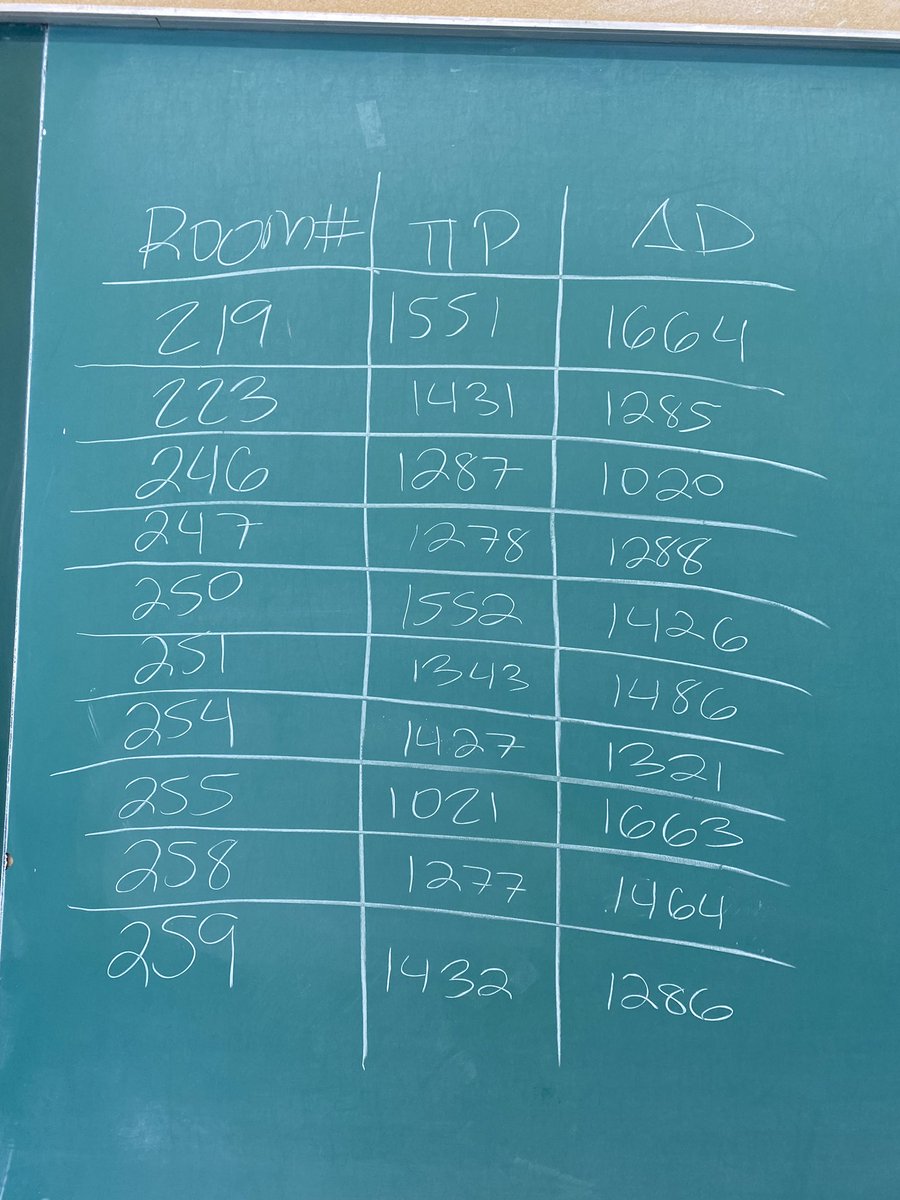 ROOM# ΠP ΔD
219 1551 1664
223 1431 1285
246 1287 1020
247 1278 1288
250 1552 1426
251 1343 1486
254 1427 1321
255 1021 1663
258 1277 1464
259 1432 1286